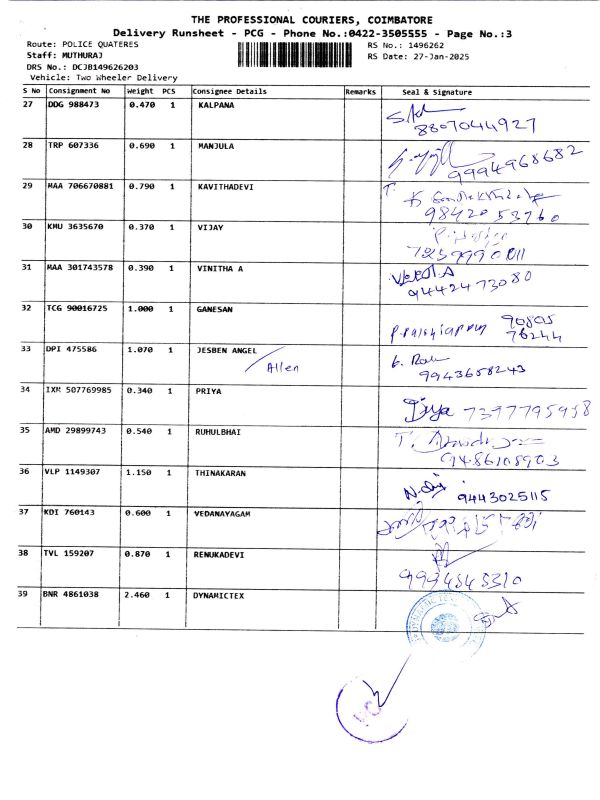 THE PROFESSIONAL COURIERS, COIMBATORE
Delivery Runsheet - PCG - Phone No.:0422-3505555 - Page No.:3
Route: POLICE QUATERES RS No.: 1496262
Staff: MUTHURAJ RS Date: 27-Jan-2025
DRS No.: DCJB149626203
Vehicle: Two Wheeler Delivery
S No Consignment No Weight PCS Consignee Details Remarks Seal & Signature
27 DDG 988473 0.470 1 KALPANA
8807044927
28 TRP 607336 0.690 1 MANJULA
9994968682
29 MAA 706670881 0.790 1 KAVITHADEVI
98420 53760
30 KMU 3635670 0.370 1 VIJAY
31 MAA 301743578 0.390 1 VINITHA A
9442473080
32 TCG 90016725 1.000 1 GANESAN
90805
76244
33 DPI 475586 1.070 1 JESBEN ANGEL
Allen
9943658243
34 IXM 507769985 0.340 1 PRIYA
7397795958
35 AMD 29899743 0.540 1 RUHULBHAI
9486108903
36 VLP 1149307 1.150 1 THINAKARAN
9443025115
37 KDI 760143 0.600 1 VEDANAYAGAM
38 TVL 159207 0.870 1 RENUKADEVI
9994545310
39 BNR 4861038 2.460 1 DYNAMICTEX